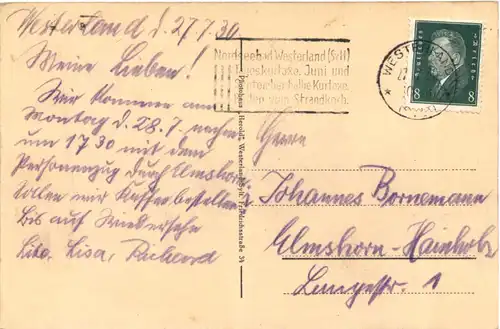 Westerland d. 27.7.30.
Meine Lieben!
Wir kommen am
Montag d. 28.7 nachm
um 1730 mit dem
Personenzug durch Elmshorn
Sollen wir Kaffee bestellen
Bis auf Wiedersehn
Lisa, Richard
Nordseebad Westerland (Sylt)
Juni und
halbe Kurtaxe.
Strandkorb.
WESTERLAND
8 8
Photohaus Herold, Westerland-Sylt, Friedrichstraße 34
Herrn
Johannes Bornemann
Elmshorn-Hainholz
Langestr. 1